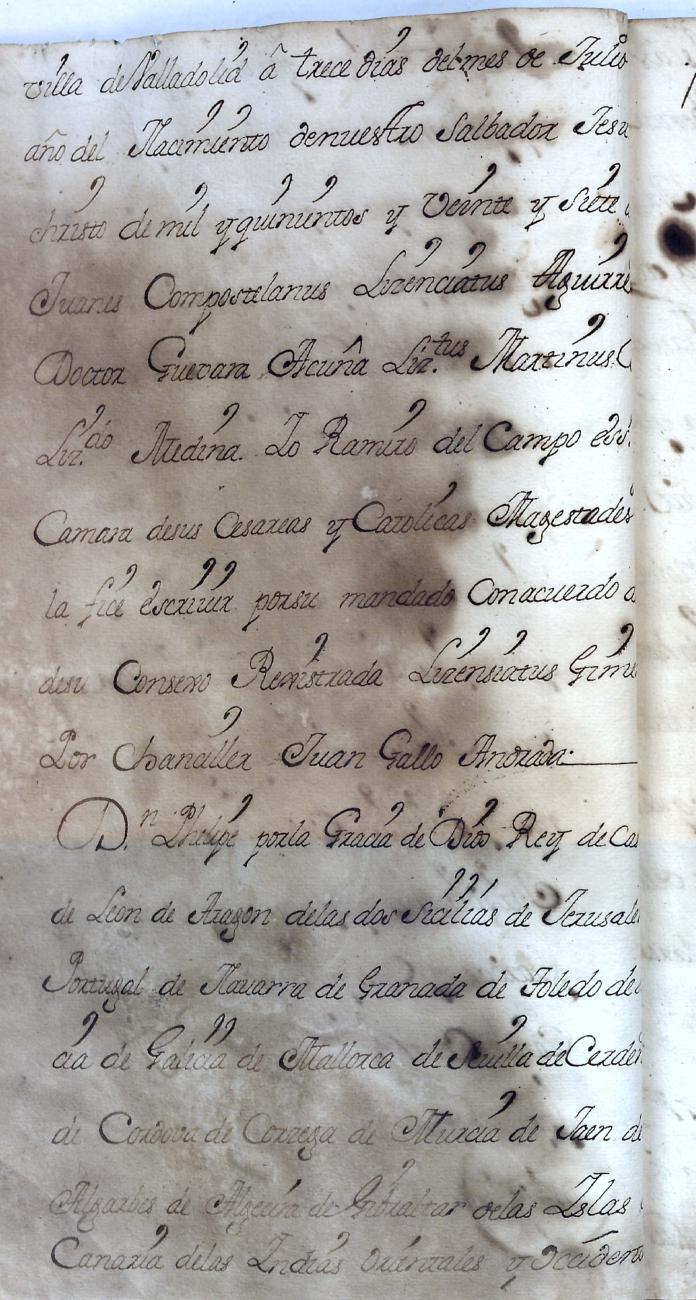 villa de Valladolid â trece dias del mes de Julio
año del Nacimiento denuestro Salbador Jesu
christo de mil y quinientos y Veinte y Siete
Juanes Compostelanus Lizenciatus Aguirre
Doctor Guevara Acuña Liz.tus Martinus
Liz.cio Medina. Io Ramiro del Campo
Camara desus Cesareas y Catolicas Magestades
la fice escrivir porsu mandado Conacuerdo
desu Consexo Rexistrada Lizensiatus Xime
Por Chanciller Juan Gallo Andrada
D.n Phelipe porla Gracia de Dios Rey de Cas
de Leon de Aragon delas dos Sicilias de Jerusale
Portugal de Navarra de Granada de Toledo de
cia de Galicia de Mallorca de Sevilla de Cerdeñ
de Cordova de Corzega de Murcia de Jaen de
Algarbes de Algecira de Gibraltar delas Islas
Canaria delas Indias Orientales y Occident